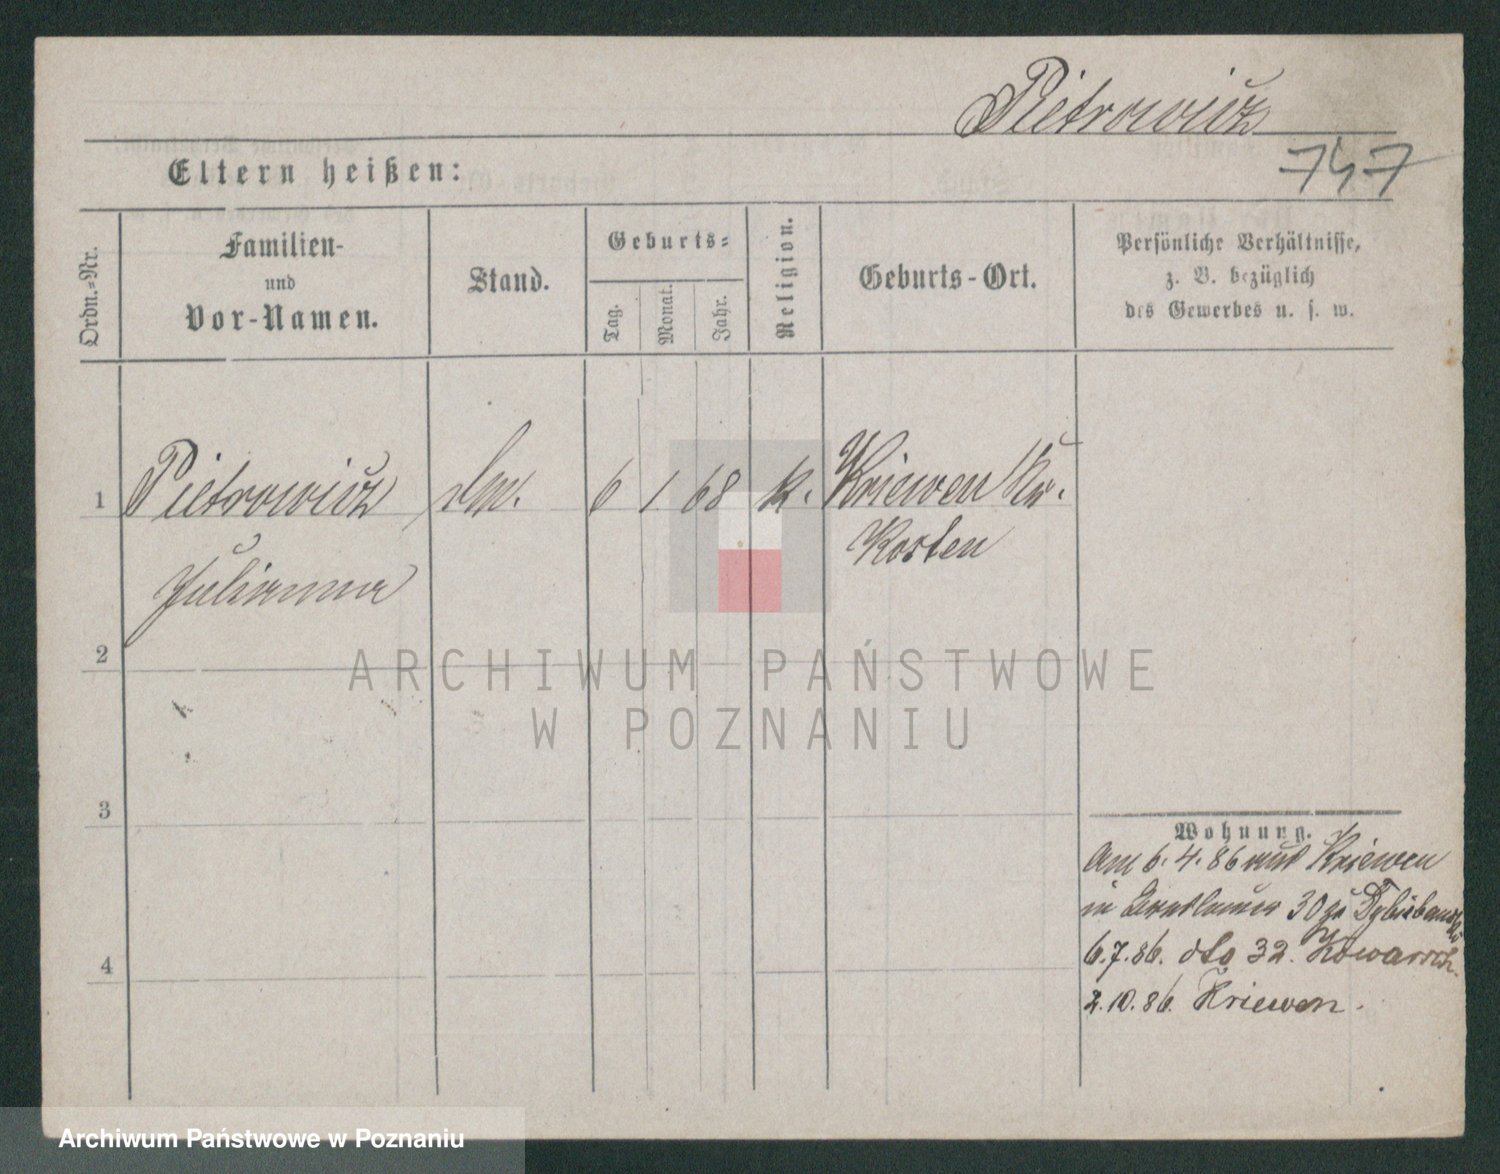 Pietrowicz
747
Eltern heißen:
Ordn.-Nr.
Familien-
und
Vor-Namen.
Stand.
Geburts-
Tag.
Monat.
Jahr.
Religion.
Geburts-Ort.
Persönliche Verhältnisse,
z. B. bezüglich
des Gewerbes u. s. w.
1 Pietrowicz 6 1 68 k. Kriewen Kr.
Kosten
Julianna
2
3
4
Wohnung.
Am 6. 4. 86 aus Kriewen
in 30 zu
6.7.86. dto 32.
2.10.86. Kriewen.
ARCHIWUM PAŃSTWOWE
W POZNANIU
Archiwum Państwowe w Poznaniu